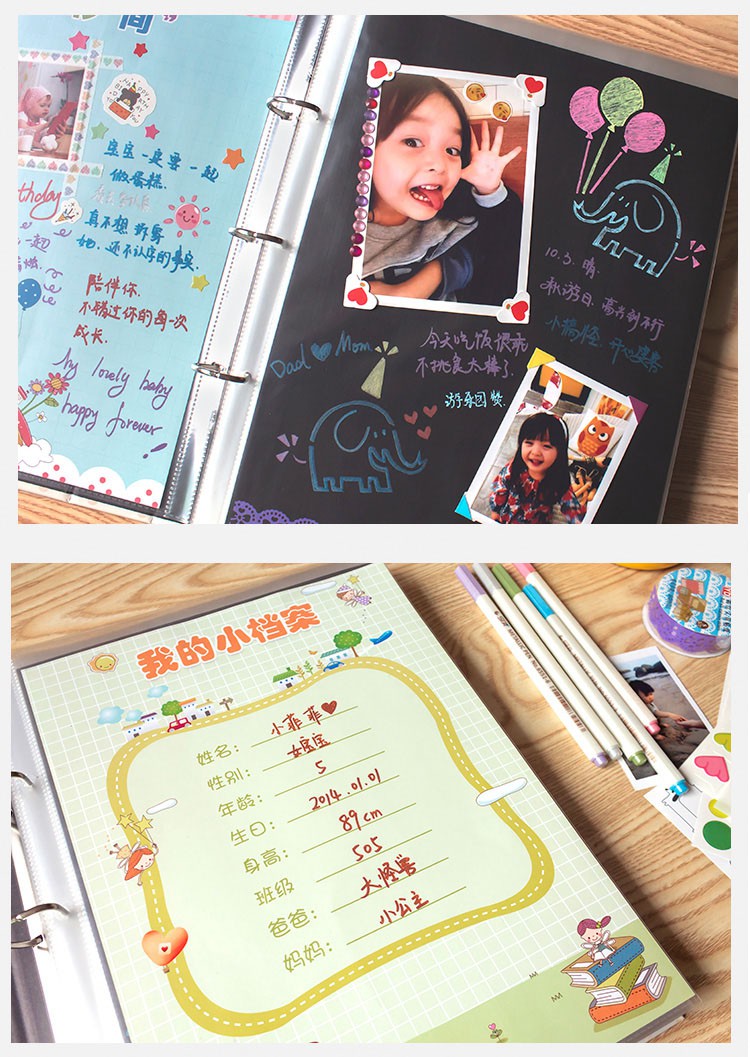 间
宝宝一定要一起
做蛋糕.
真不想拆穿
她，还不认字的事实.
thday
一起
陪伴你.
不错过你的每一次
成长.
my lovely baby
happy forever!
10.3. 晴.
秋游日.
小搞怪 开心果
Dad Mom.
今天吃饭很乖
不挑食太棒了.
游乐园赞.
我的小档案
姓名： 小菲菲
性别： 女宝宝
年龄： 5
生日： 2014.01.01
身高： 89cm
班级 505
爸爸： 大怪兽
妈妈： 小公主